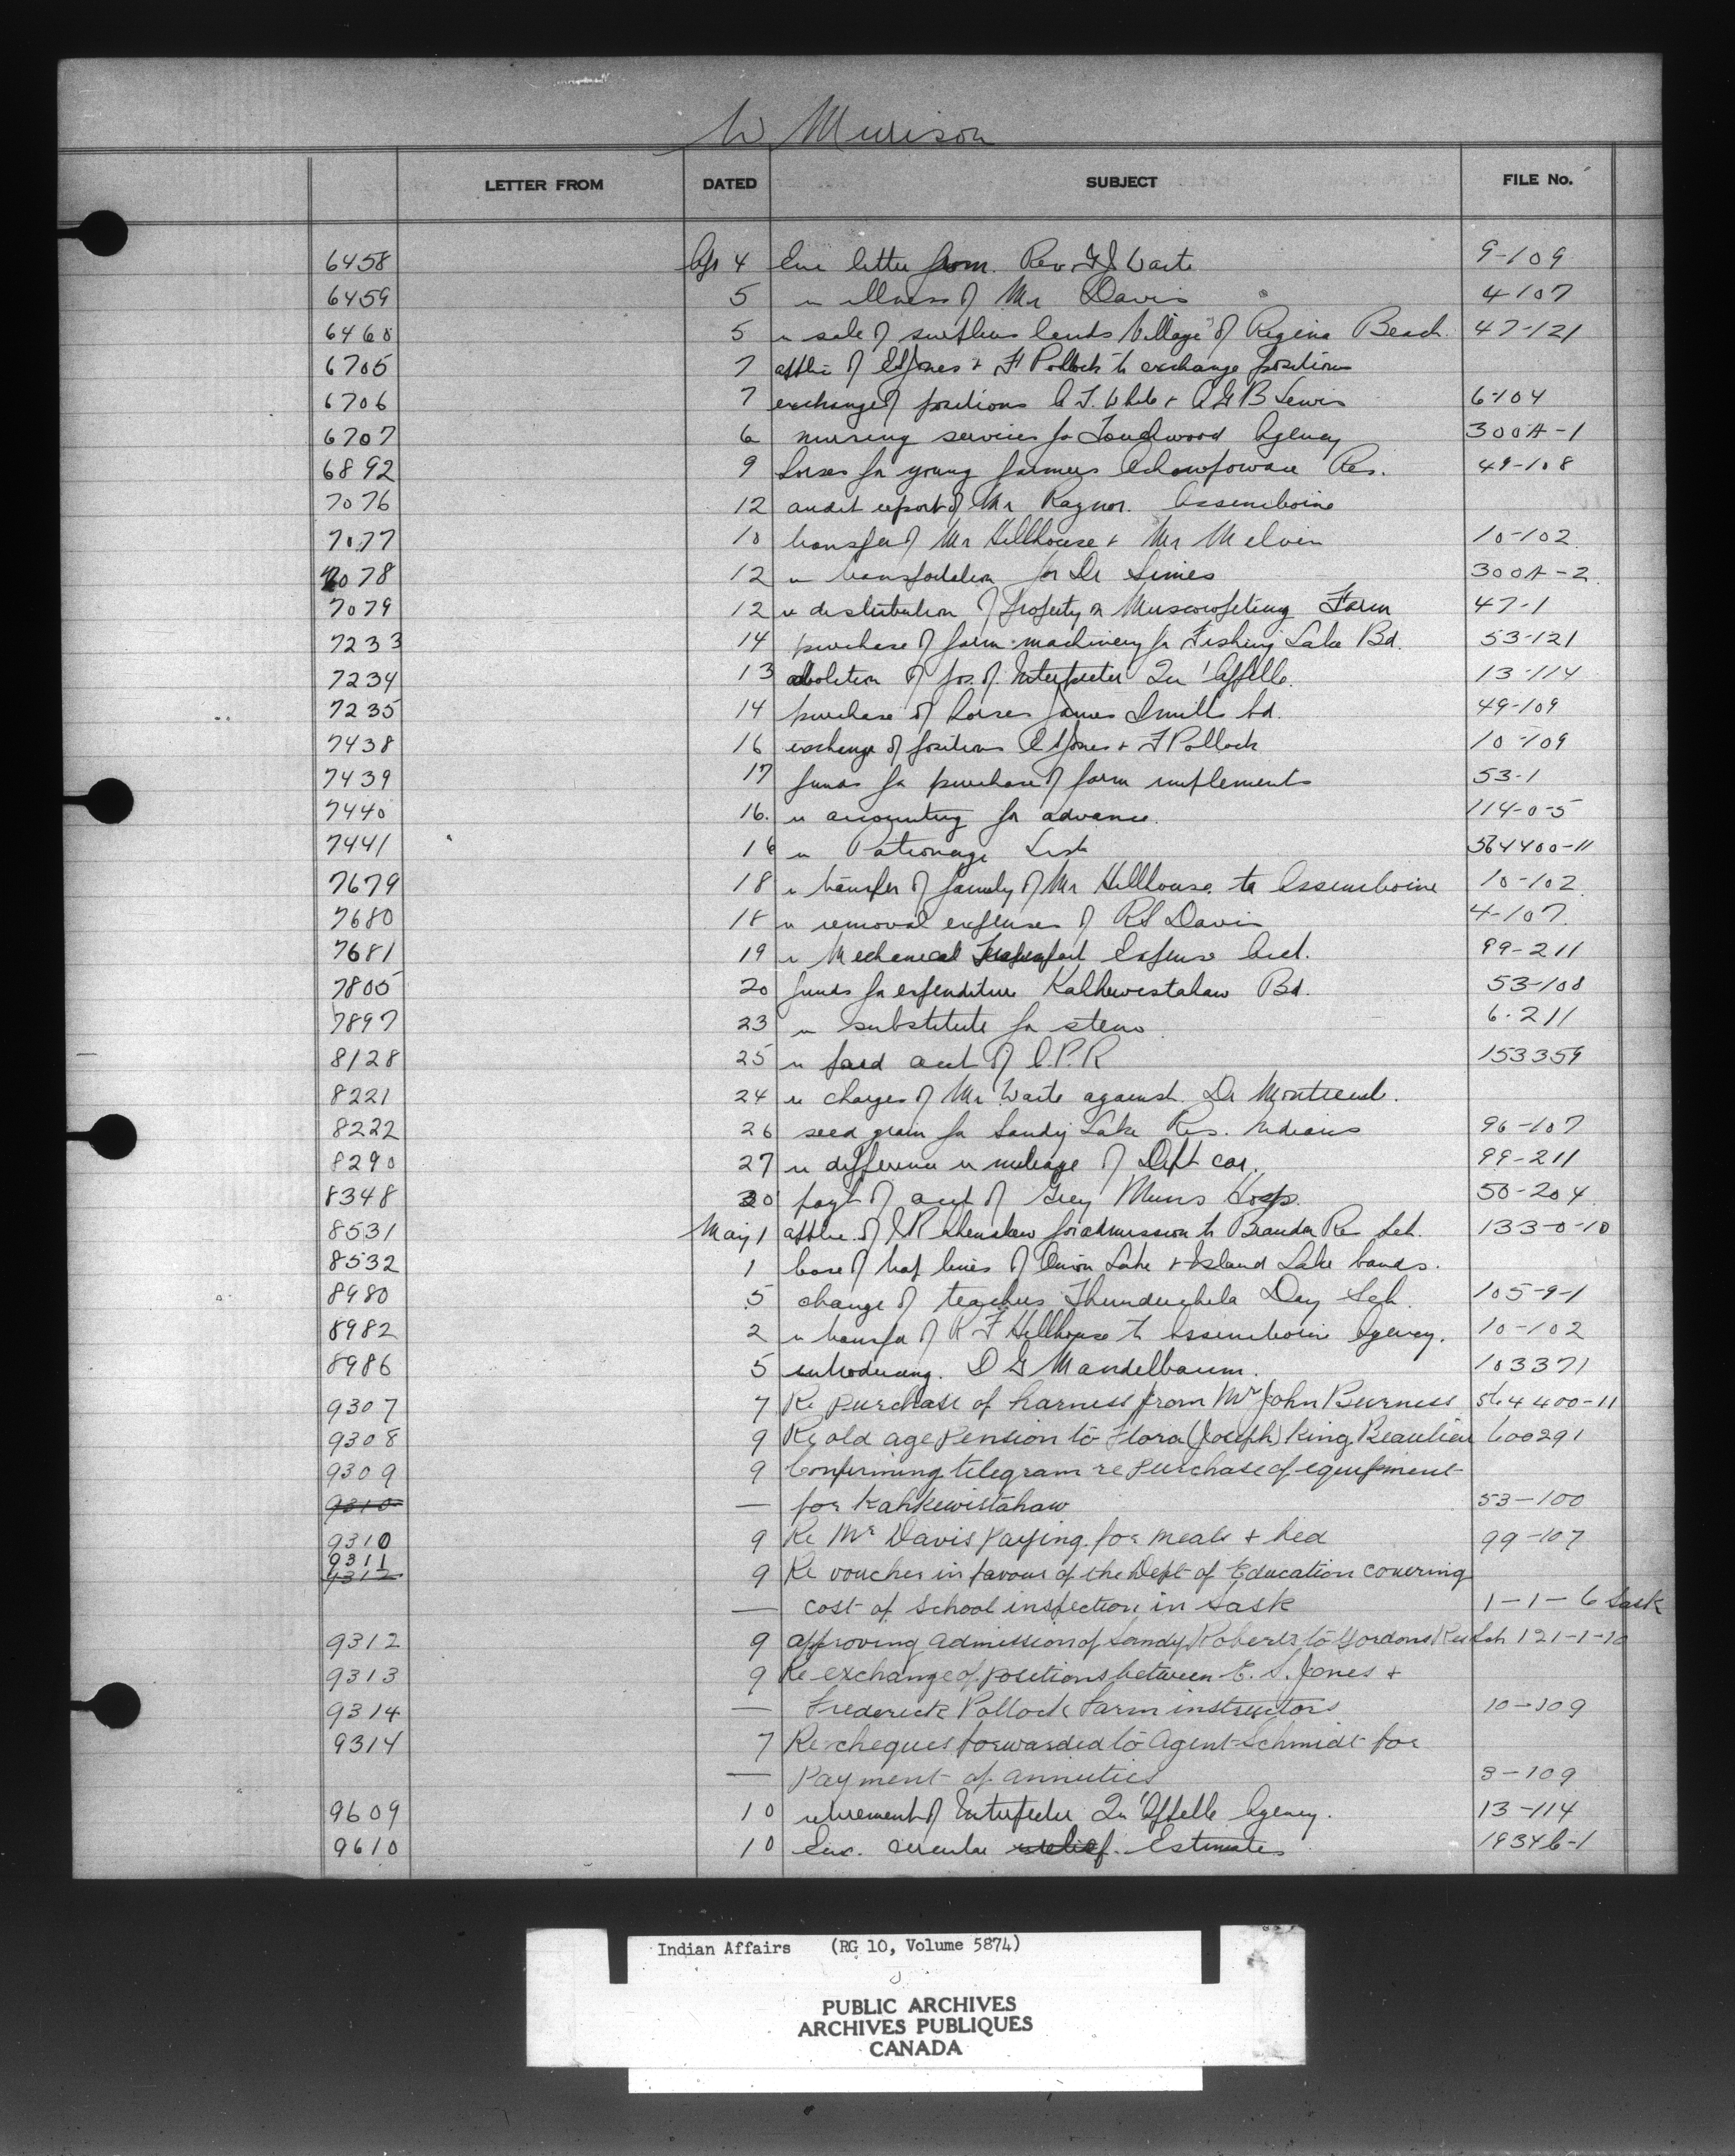 W Murison
LETTER FROM DATED SUBJECT FILE No.
6458 Apr 4 Enc letter from Rev. F J Waite 9-109
6459 5 re illness of Mr Davis 4-107
6460 5 re sale of surplus lands Village of Regina Beach 47-121
6705 7 applic of E S Jones + F Pollock to exchange positions
6706 7 exchange of positions C T White + A G B Lewis 6-104
6707 6 nursing services for Touchwood Agency 300A-1
6892 9 horses for young farmers Ochowpowace Res. 49-108
7076 12 audit report of Mr Raynor. Assiniboine
7077 10 transfer of Mr Hillhouse + Mr Melvin 10-102
7078 12 re transportation for Dr Simes 300A-2
7079 12 re distribution of property on Muscowpeting Farm 47-1
7233 14 purchase of farm machinery for Fishing Lake Bd. 53-121
7234 13 abolition of pos. of Interpreter Qu'Appelle. 13-114
7235 14 purchase of horses James Smith bd. 49-109
7438 16 exchange of positions E S Jones + F Pollock 10-109
7439 17 funds for purchase of farm implements 53-1
7440 16. re accounting for advance. 114-0-5
7441 16 re Patronage List 564400-11
7679 18 re transfer of family of Mr Hillhouse to Assiniboine 10-102
7680 18 re removal expenses of R S Davis 4-107
7681 19 re Mechanical Transport Expense Acct. 99-211
7805 20 funds for expenditure Kahkewistahaw Bd. 53-108
7897 23 re substitute for steno 6-211
8128 25 re paid acct of C.P.R 153359
8221 24 re charges of Mr Waite against Dr
8222 26 seed grain for Sandy Lake Res. Indians 96-107
8290 27 re difference in mileage of Dept car. 99-211
8348 30 payt of acct of Grey Nuns Hosp. 50-204
8531 May 1 applic. of for admission to Brandon Res Sch. 133-0-10
8532 1 lease of trap lines of Onion Lake + Island Lake bands.
8980 5 change of teachers Thunderchild Day Sch. 105-9-1
8982 2 re transfer of R F Hillhouse to Assiniboine Agency. 10-102
8986 5 introducing. D G Mandelbaum. 103371
9307 7 Re Purchase of harness from Mr John Burness 564400-11
9308 9 Re old age Pension to Flora (Joseph) King Beaulieu 600291
9309 9 Confirming telegram re Purchase of equipment
9310 — for Kahkewistahaw 53-100
9310 9 Re Mr Davis Paying for meals + bed 99-107
9311
9312 9 Re voucher in favour of the Dept of Education covering
— cost of School inspection in Sask 1-1-6 Sask
9312 9 approving admission of Sandy Roberts to Gordons Res Sch 121-1-10
9313 9 Re exchange of positions between E. S. Jones +
9314 — Frederick Pollock Farm instructors 10-109
9314 7 Re cheques forwarded to Agent Schmidt for
— Payment of annuities 3-109
9609 10 retirement of Interpreter Qu'Appelle Agency. 13-114
9610 10 Enc. circular relief. Estimates 1934b-1
Indian Affairs (RG 10, Volume 5874)
PUBLIC ARCHIVES
ARCHIVES PUBLIQUES
CANADA